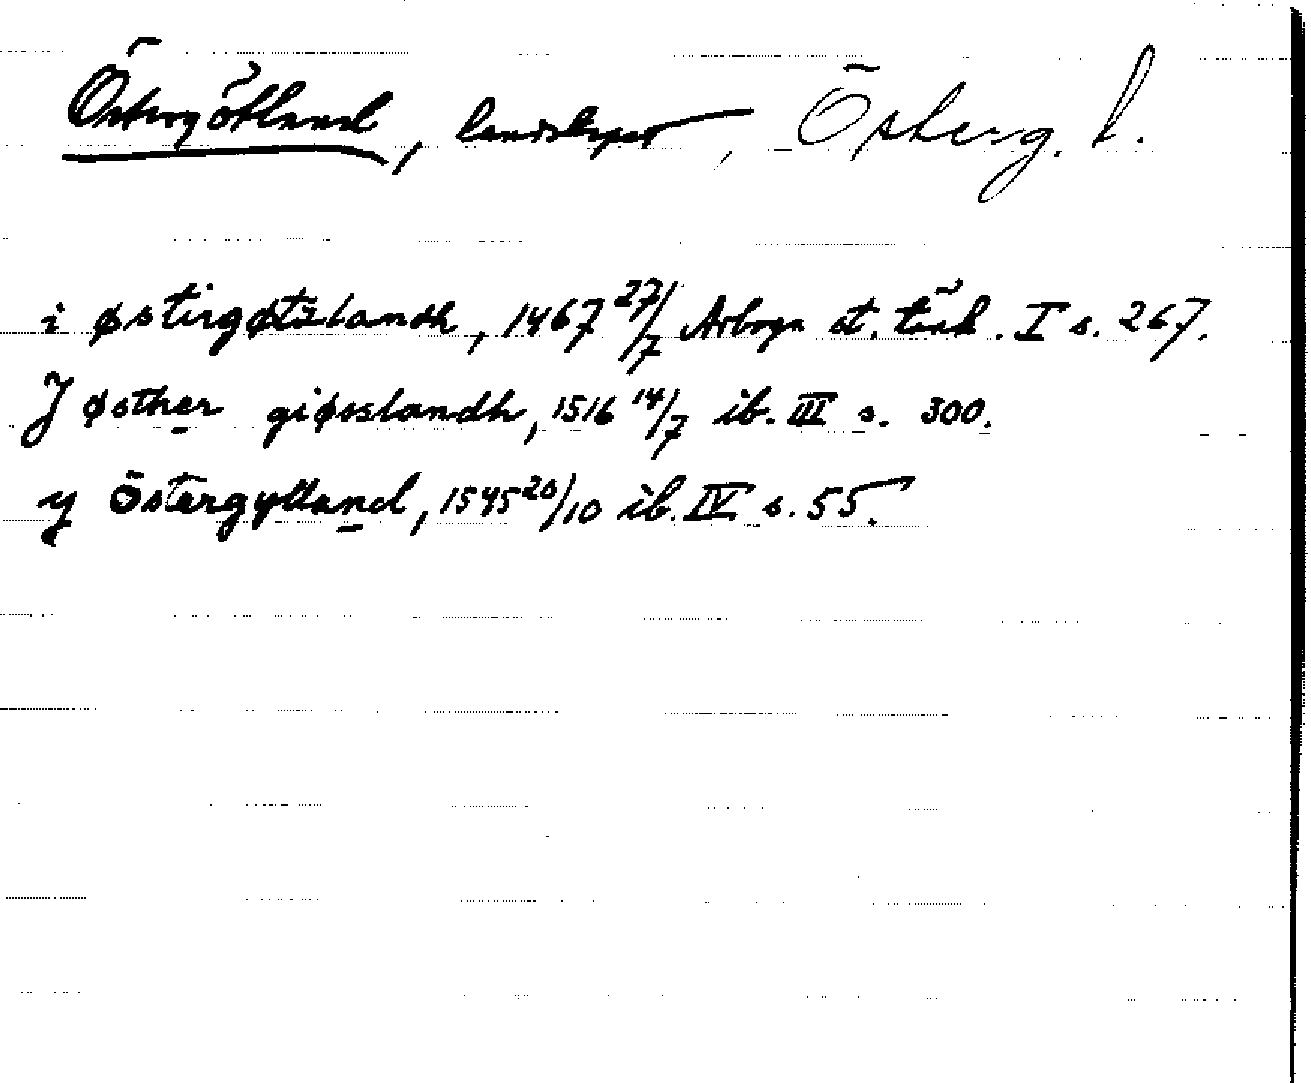 Östergötland, landskapet, Österg. l.
i østirgøtzlandh, 1467 27/7 Arboga st. tänk. I s. 267.
J østher giøsslandh, 1516 14/7 ib. III s. 300.
y Östergytland, 1545 20/10 ib. IV s. 55.